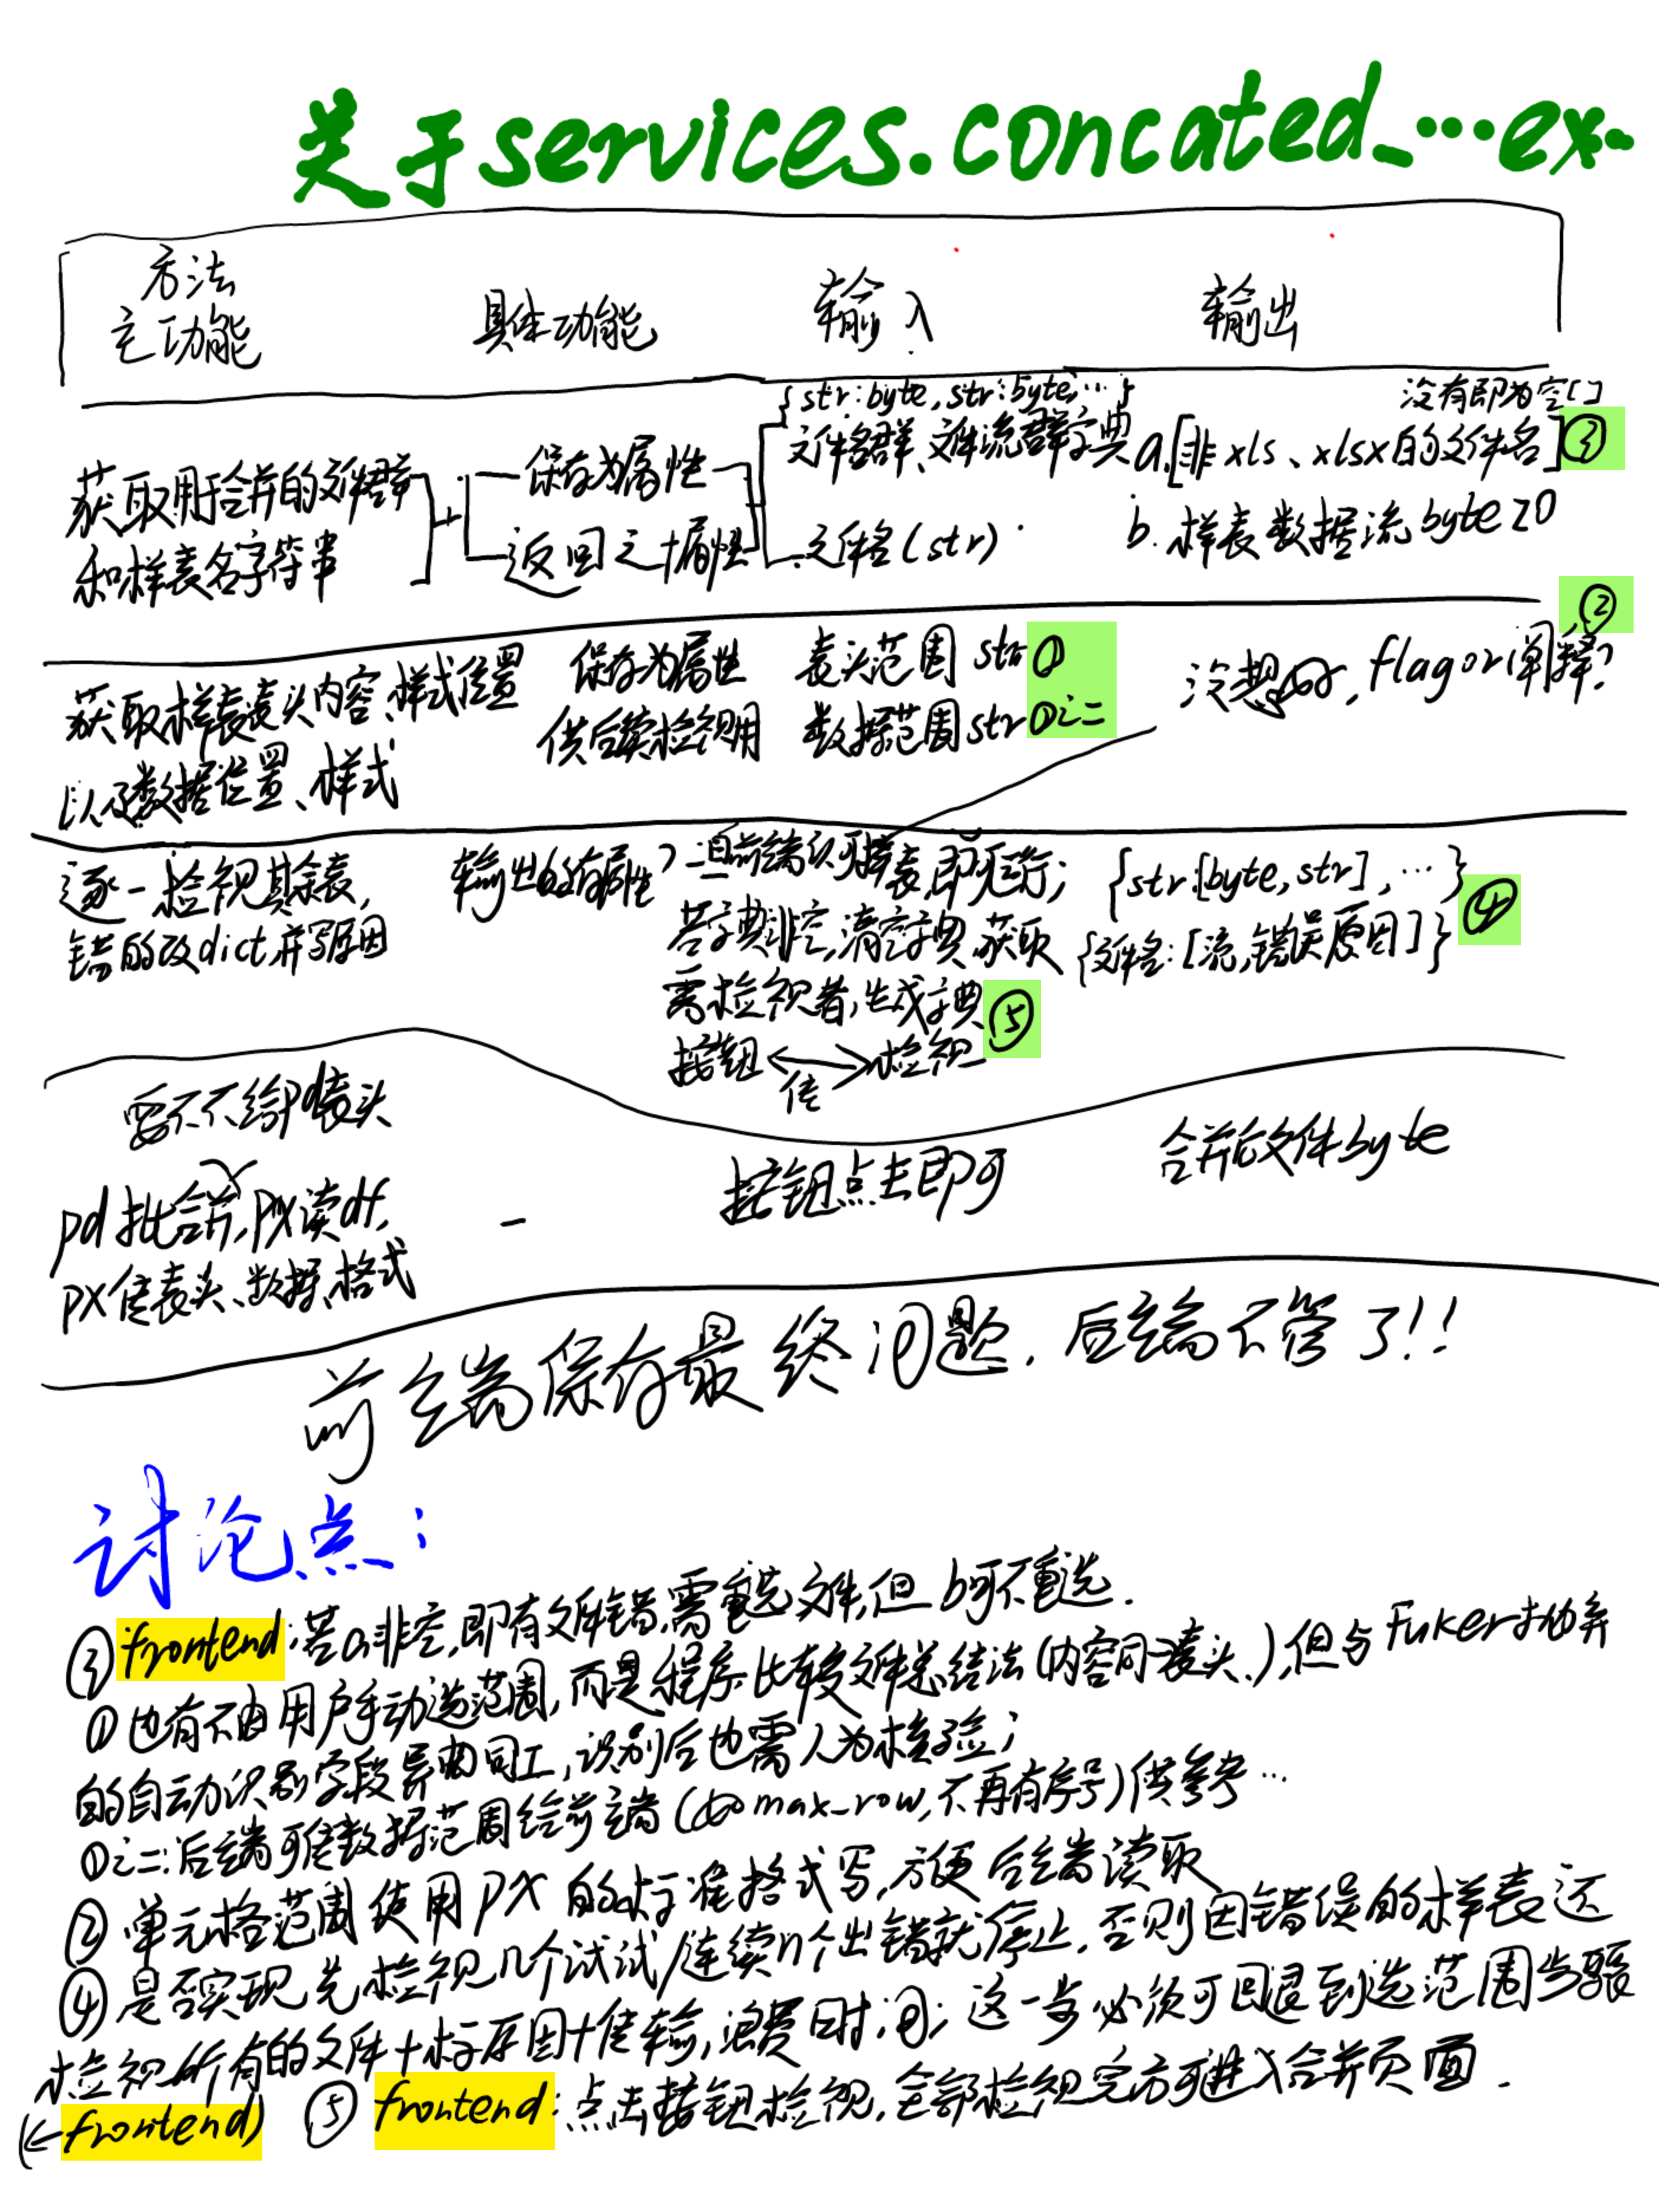 关于services.concated_…ex-
方法
主功能
具体功能
输入
输出
{str:byte, str:byte, …}
没有即为空[]
获取用于合并的文件群
和样表名字符串
保存为属性
返回之+属性
文件名群、文件流群字典
文件名(str)
a.[非xls、xlsx的文件名]③
b.样表数据流byteIO
获取样表表头内容、样式位置
以及数据位置、样式
保存为属性
供后续检视用
表头范围 str①
数据范围str①之二
没想好,flag or 单择?②
逐一检视其余表,
错的改dict,并写原因
输出的存属性
一旦前端认可样表,即可运行;
若字典非空,清空字典,获取
需检视者,生成字典
按钮<—>检视⑤
传
{str:[byte,str],…}
{文件名:[流,错误原因]}④
要不不给pd表头
pd批合并,px读df,
px传表头、数据、格式
-
按钮点击即可
合并后文件byte
前端保存最终问题,后端不管了!!
讨论点:
③frontend:若a非空,即有文件错,需重选文件,但b可不重选.
①也有不由用户手动选范围,而是程序比较文件总结法(内容同→表头、),但与Fuker抛弃
的自动识别字段异曲同工,识别后也需人为核验;
①之二:后端可传数据范围给前端(如max_row,不再有序号)供参考…
②单元格范围使用px的标准格式写,方便后端读取
④是否实现先检视几个试试/连续n个出错就停止,否则因错误的样表还
检视所有的文件+标原因+传输,浪费时间;这一步必须可回退到选范围步骤
(←frontend) ⑤frontend:点击按钮检视,全部检视完方可进入合并页面.